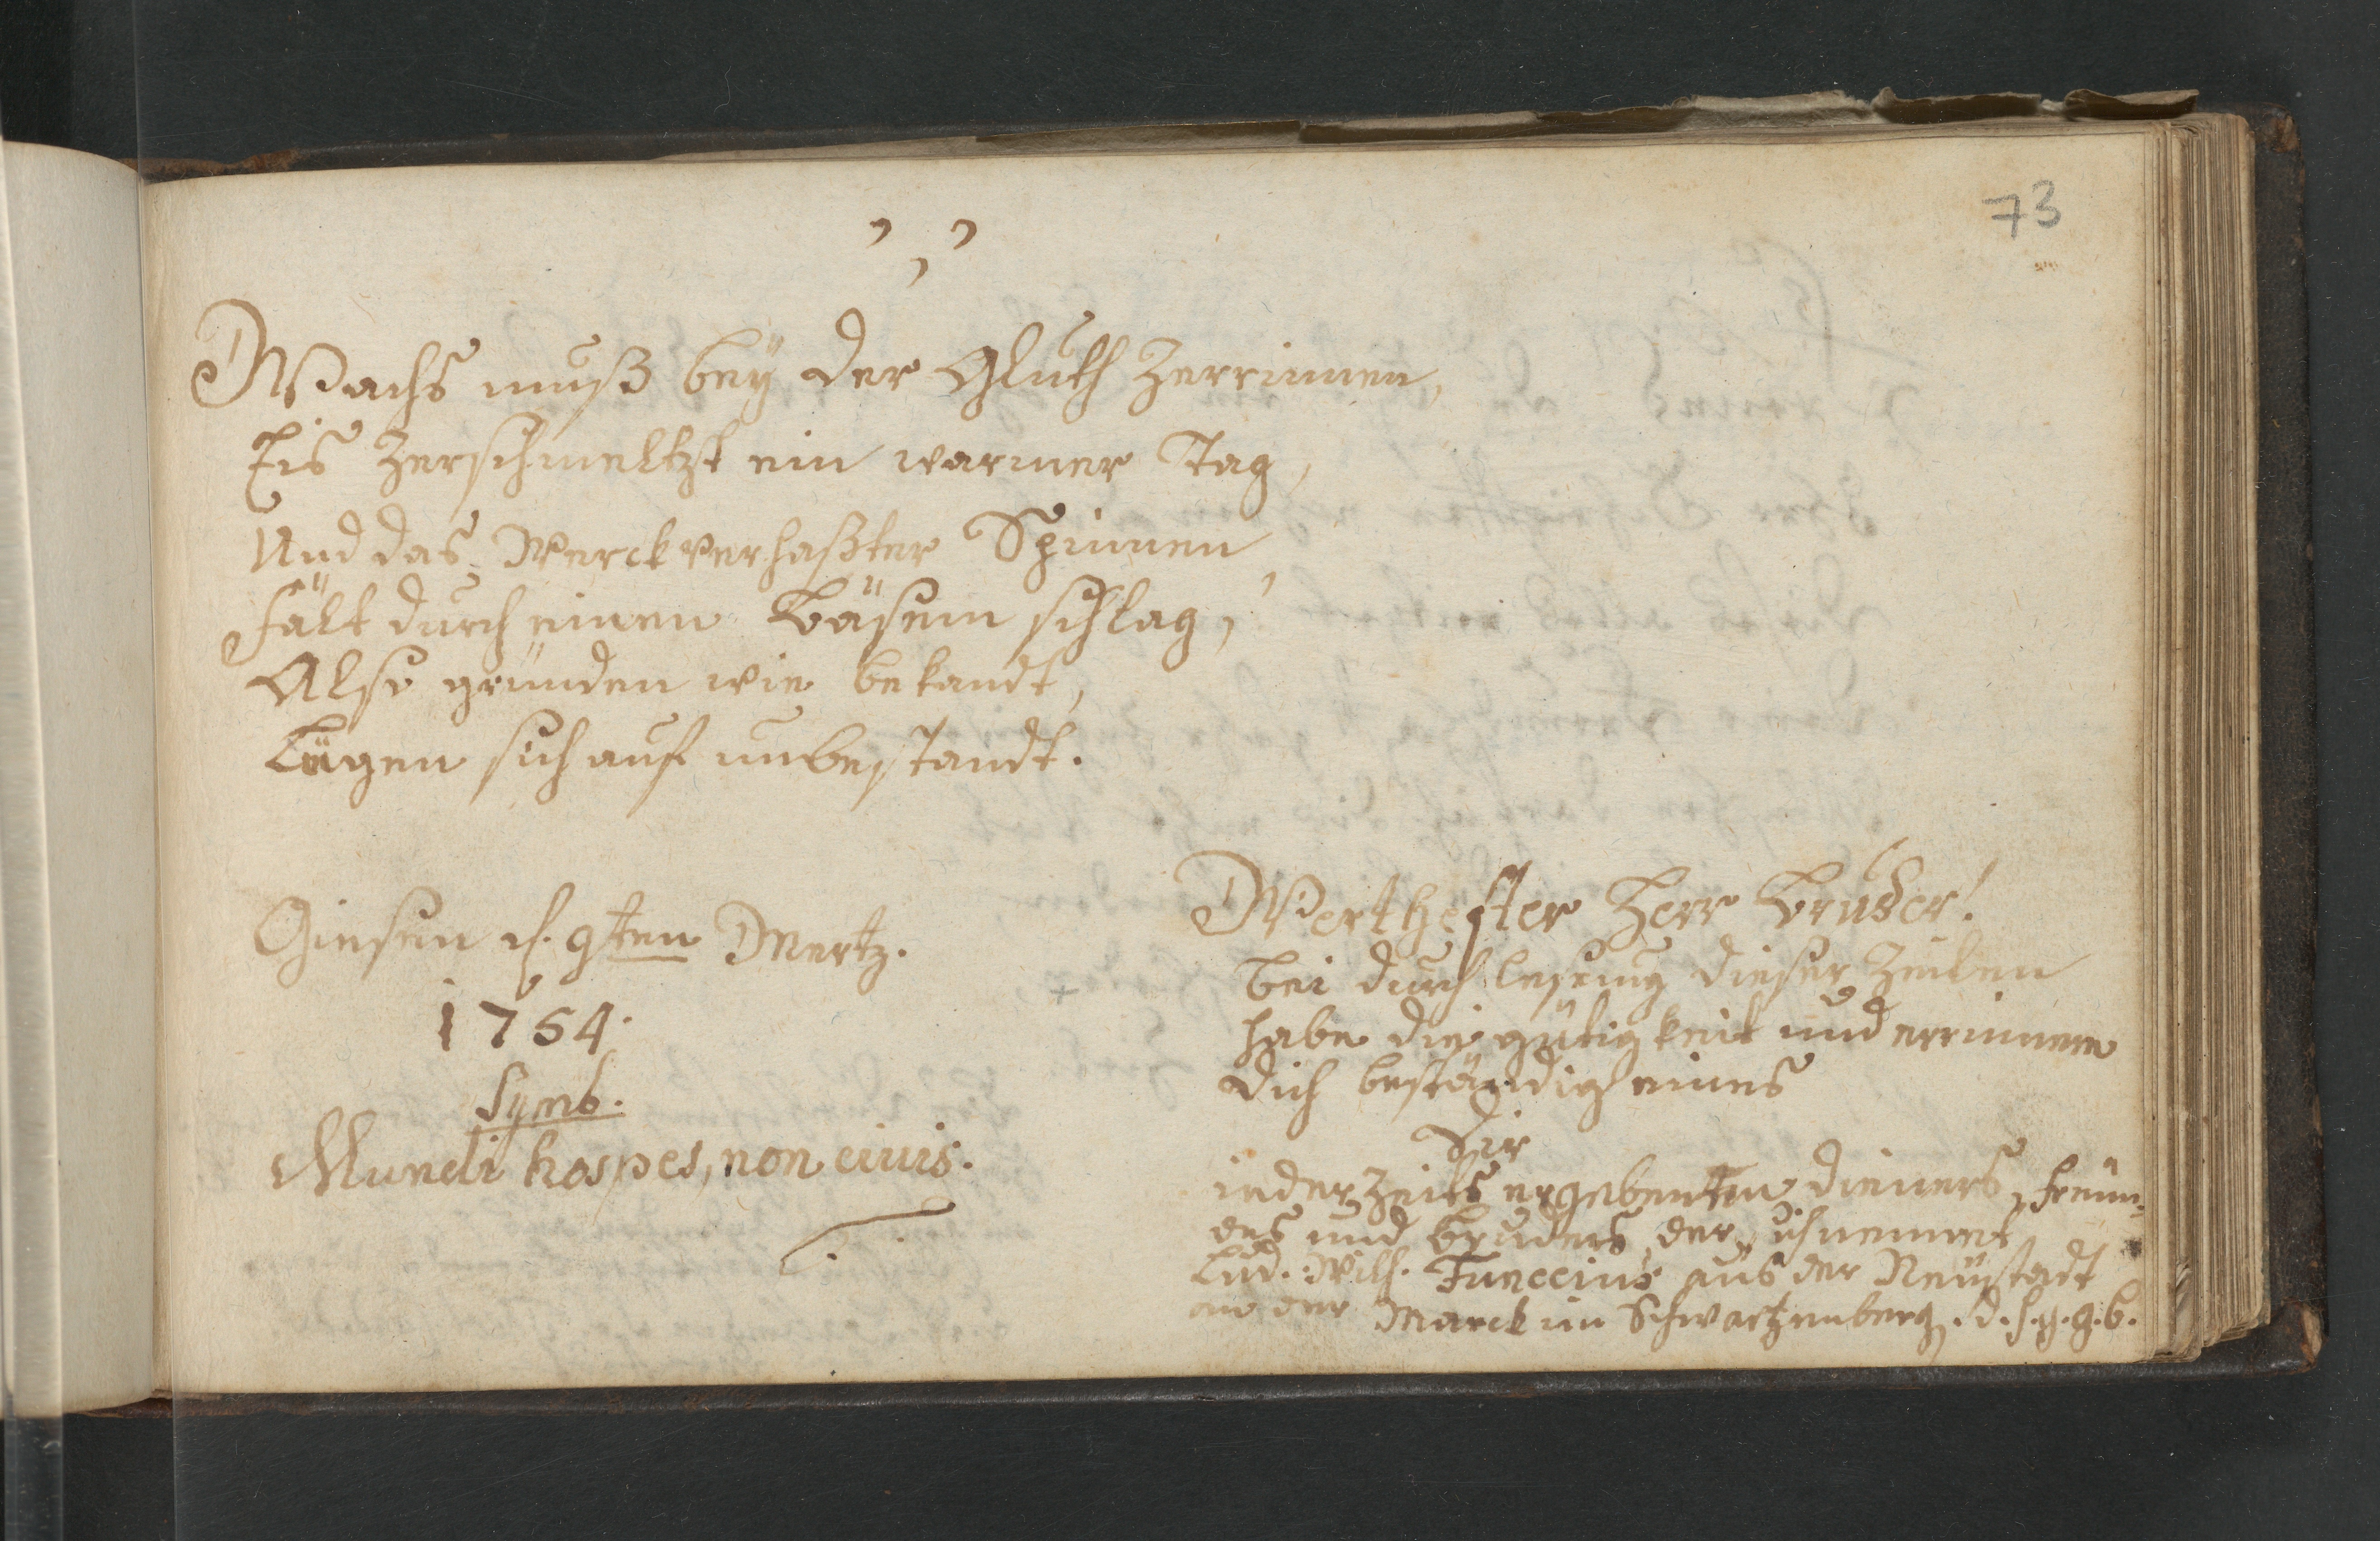 73
Wachs muß bey der Gluth Zerrinnen,
Eis Zerschmeltzt ein warmer Tag,
Und das Werck verhaßter Spinnen,
fält durch einen Bäsem schlag,
Also gründen wie bekandt,
Lügen sich auf unbestandt.
Giesen d. 9ten Mertz.
1754.
Symb.
Mundi hospes, non civis.
Werthester Herr Bruder!
bei durch lesung dieser Zeilen
habe die gütigkeit und errinnere
dich beständig eines
Dir
ieder Zeits ergebensten dieners, freün-
des und bruders, der sich nennet
Lud. Wilh. Funccius aus der Neustadt
an der Marck im Schwartzenberg. d. h. g. g. b.